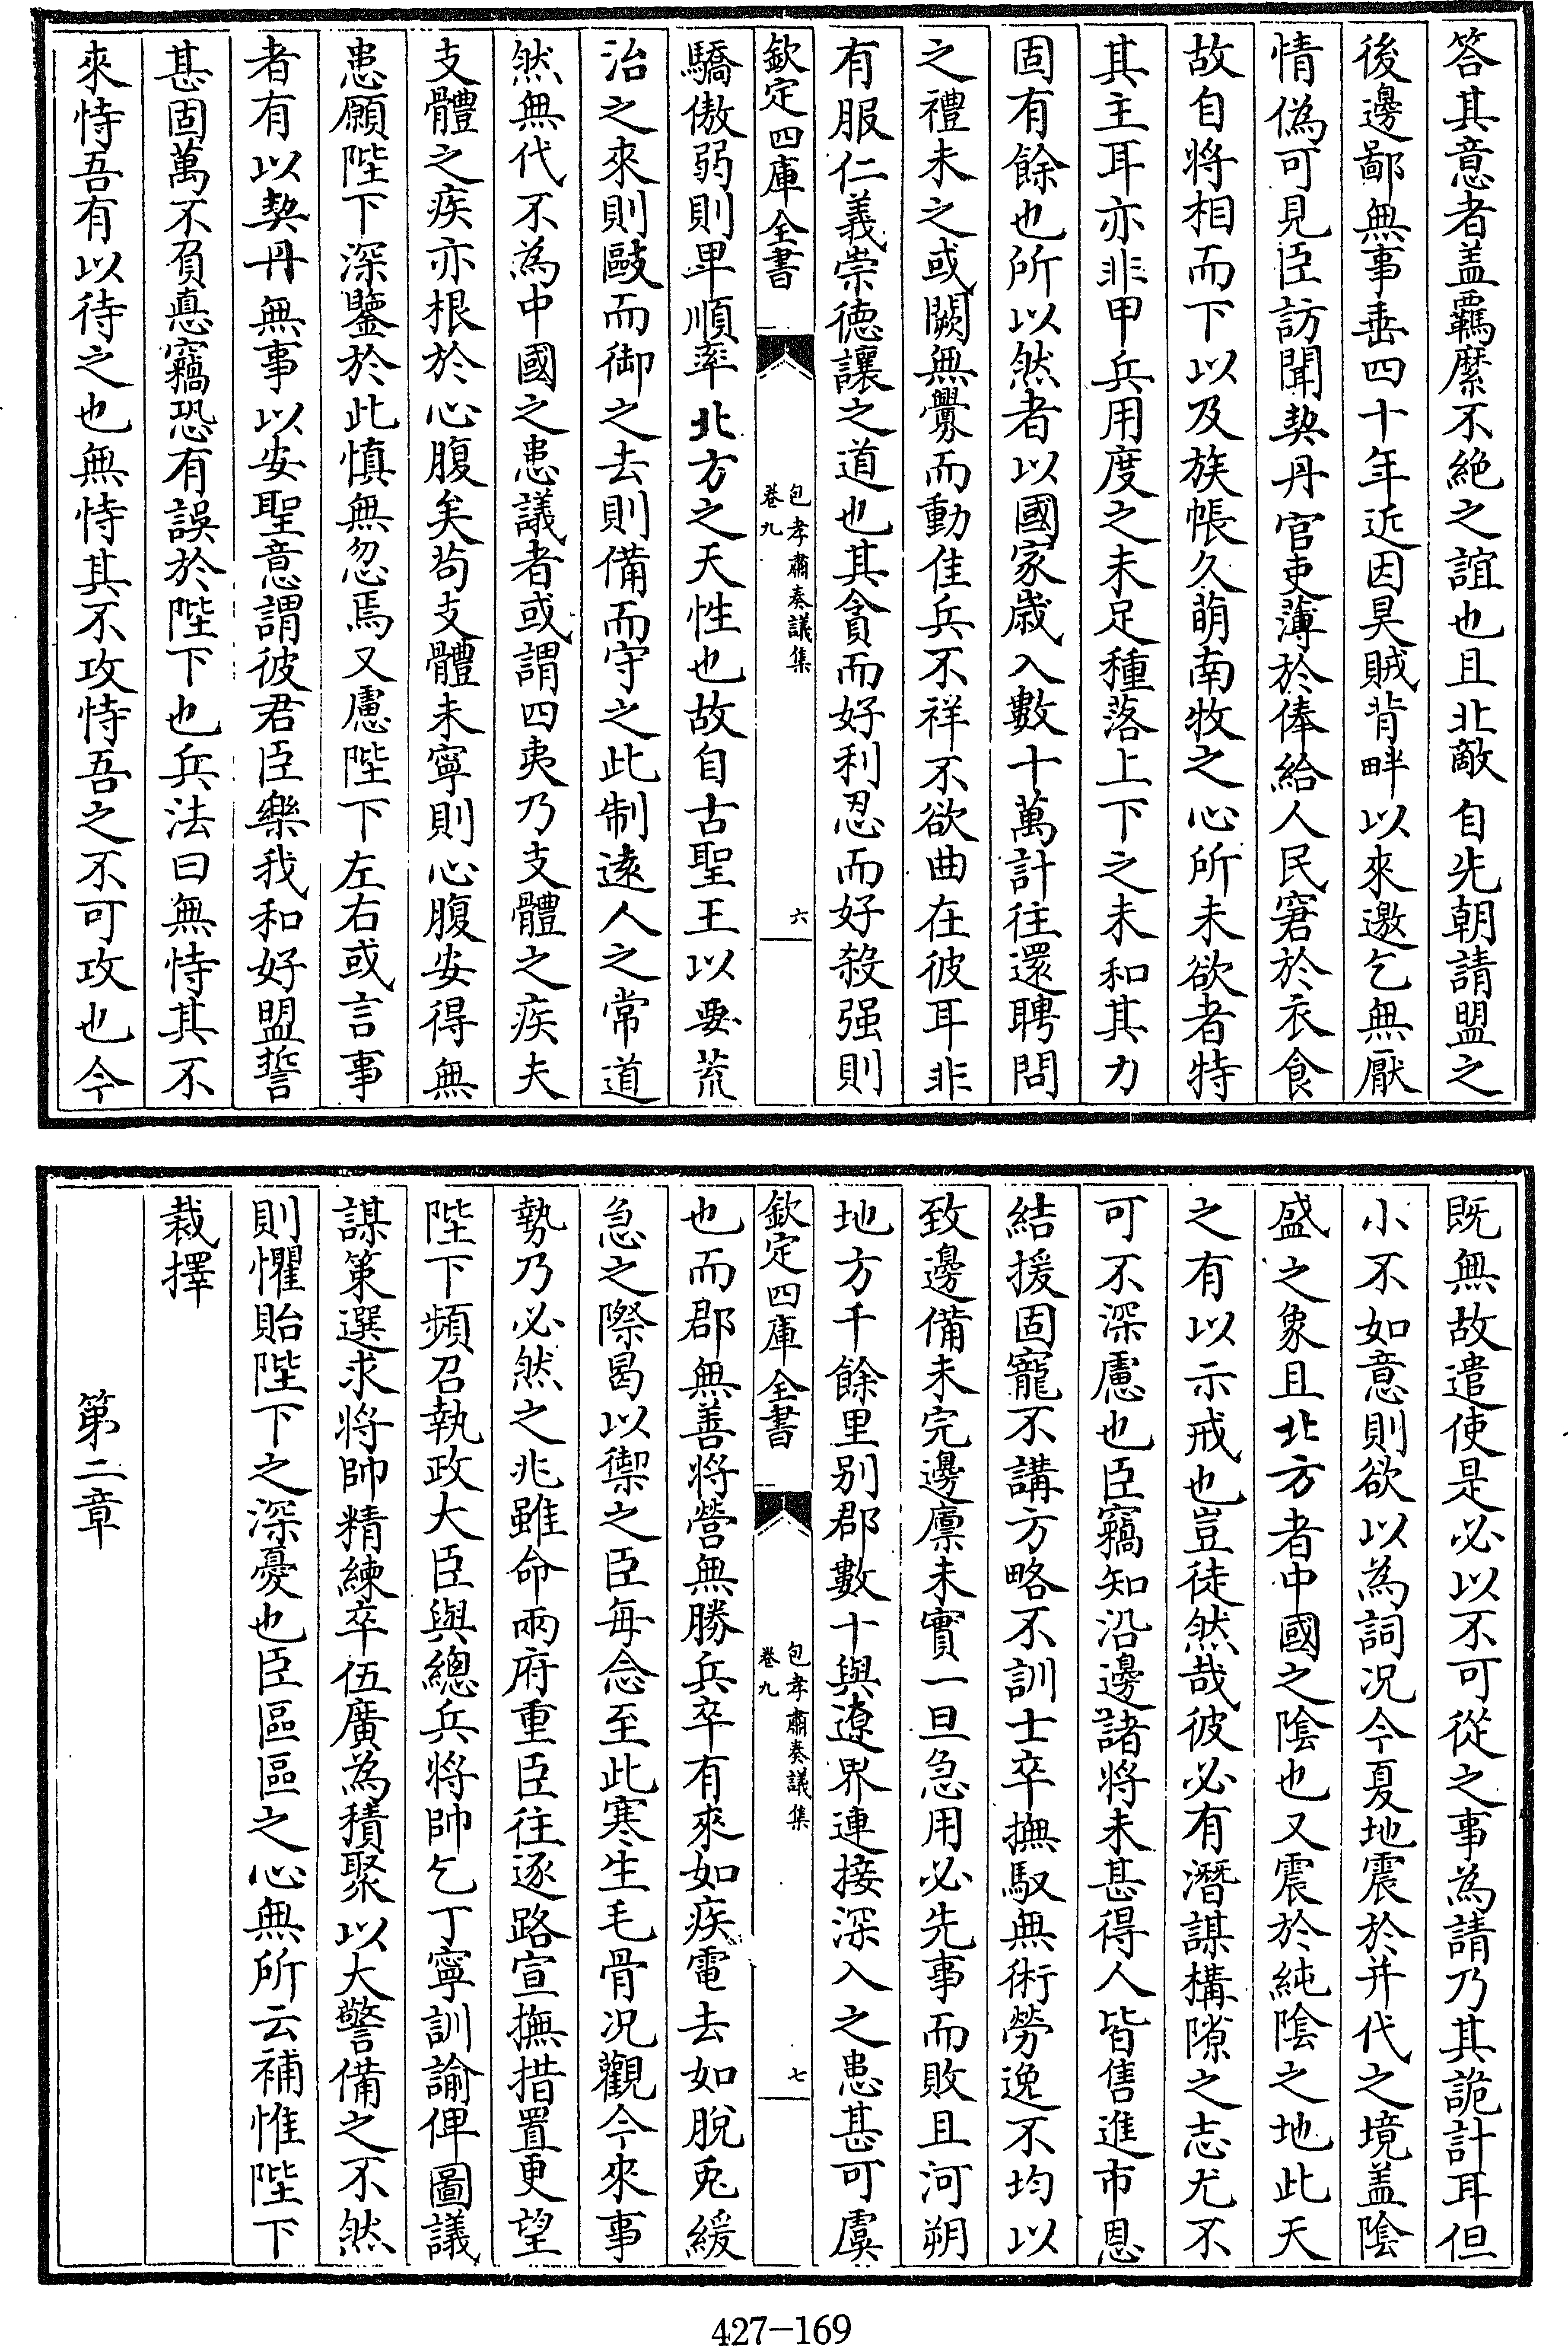 答其意者盖羈縻不絶之誼也且北敵自先朝請盟之
後邊鄙無事垂四十年近因昊賊背畔以來邀乞無厭
情偽可見臣訪聞契丹官吏薄於俸給人民窘於衣食
故自將相而下以及族帳久萌南牧之心所未欲者特
其主耳亦非甲兵用度之未足種落上下之未和其力
固有餘也所以然者以國家歲入數十萬計往還聘問
之禮未之或闕無釁而動隹兵不祥不欲曲在彼耳非
有服仁義崇德讓之道也其貪而好利忍而好殺强則
欽定四庫全書
包孝肅奏議集
卷九
六
驕傲弱則卑順率北方之天性也故自古聖王以要荒
治之來則敺而御之去則備而守之此制遠人之常道
然無代不為中國之患議者或謂四夷乃支體之疾夫
支體之疾亦根於心腹矣苟支體未寧則心腹安得無
患願陛下深鑒於此慎無忽焉又慮陛下左右或言事
者有以契丹無事以安聖意謂彼君臣樂我和好盟誓
甚固萬不負悳竊恐有誤於陛下也兵法曰無恃其不
來恃吾有以待之也無恃其不攻恃吾之不可攻也今
既無故遣使是必以不可從之事為請乃其詭計耳但
小不如意則欲以為詞况今夏地震於并代之境盖陰
盛之象且北方者中國之陰也又震於純陰之地此天
之有以示戒也豈徒然哉彼必有潛謀構隙之志尤不
可不深慮也臣竊知沿邊諸將未甚得人皆售進市恩
結援固寵不講方略不訓士卒撫馭無術勞逸不均以
致邊備未完邊廪未實一旦急用必先事而敗且河朔
地方千餘里别郡數十與遼界連接深入之患甚可虞
欽定四庫全書
包孝肅奏議集
卷九
七
也而郡無善將營無勝兵卒有來如疾電去如脱兎緩
急之際曷以禦之臣每念至此寒生毛骨况觀今來事
勢乃必然之兆雖命兩府重臣往逐路宣撫措置更望
陛下頻召執政大臣與總兵將帥乞丁寧訓諭俾圖議
謀策選求將帥精練卒伍廣為積聚以大警備之不然
則懼貽陛下之深憂也臣區區之心無所云補惟陛下
裁擇
第二章
427-169